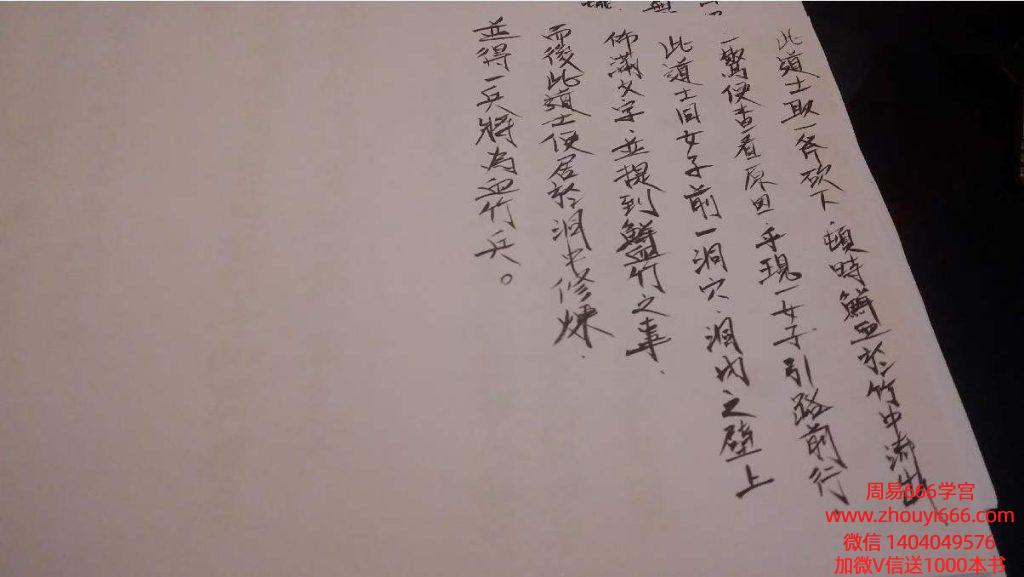 此道士取一斧砍下、頓時鮮血於竹中流出、
一驚便查看原因、乎現一女子引路前行、
此道士因女子前一洞穴、洞内之壁上
佈滿文字、並提到鮮血竹之事、
而後此道士便居於洞中修煉、
並得一兵將為血竹兵。
周易666学宫
www.zhouyi666.com
微信 1404049576
加微V信送1000本书